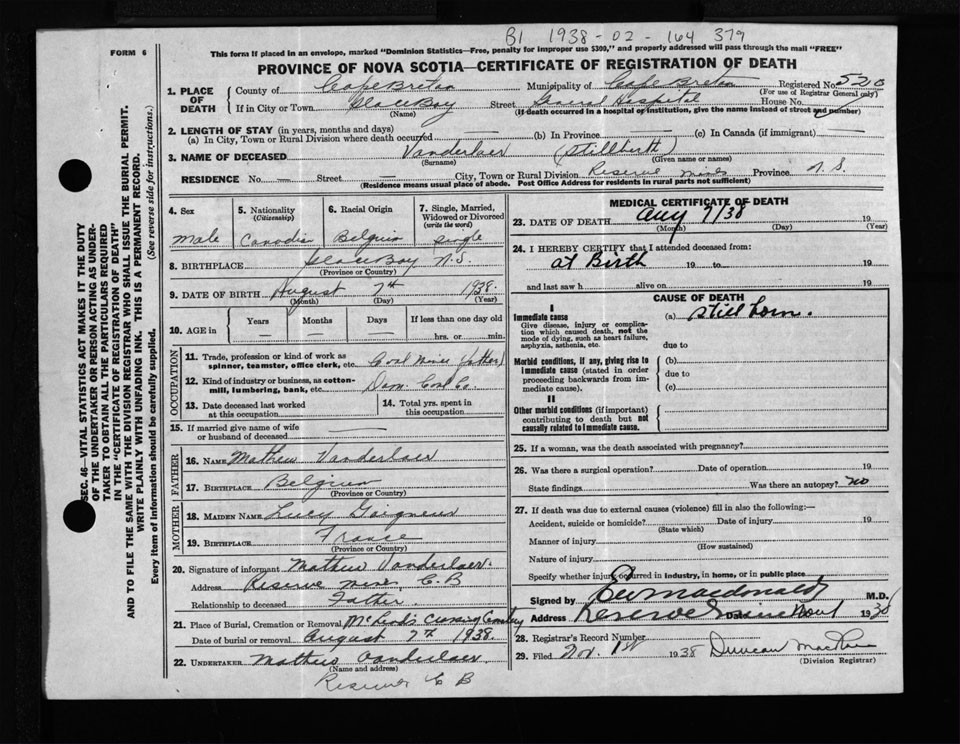 B1 1938-02-164 379
FORM 6
This form if placed in an envelope, marked "Dominion Statistics—Free, penalty for improper use $300," and properly addressed will pass through the mail "FREE"
PROVINCE OF NOVA SCOTIA—CERTIFICATE OF REGISTRATION OF DEATH
1. PLACE OF DEATH
County of Cape Breton Municipality of Cape Breton Registered No. 520
(For use of Registrar General only)
If in City or Town Glace Bay Street General Hospital House No.
(Name) (If death occurred in a hospital or institution, give the name instead of street and number)
2. LENGTH OF STAY (in years, months and days)
(a) In City, Town or Rural Division where death occurred — (b) In Province — (c) In Canada (if immigrant) —
3. NAME OF DECEASED Vanderlaer (Stillbirth)
(Surname) (Given name or names)
RESIDENCE No. — Street — City, Town or Rural Division Reserve Mines Province N.S.
(Residence means usual place of abode. Post Office Address for residents in rural parts not sufficient)
4. Sex
Male
5. Nationality
(Citizenship)
6. Racial Origin
7. Single, Married, Widowed or Divorced
(write the word)
Single
8. BIRTHPLACE Glace Bay N.S.
(Province or Country)
9. DATE OF BIRTH August 7th 1938
(Month) (Day) (Year)
10. AGE in
Years
Months
Days
If less than one day old
hrs. or min.
OCCUPATION
11. Trade, profession or kind of work as spinner, teamster, office clerk, etc. Coal Miner (father)
12. Kind of industry or business, as cotton-mill, lumbering, bank, etc. Dom. Coal Co.
13. Date deceased last worked at this occupation
14. Total yrs. spent in this occupation
15. If married give name of wife or husband of deceased
FATHER
16. NAME Mathew Vanderlaer
17. BIRTHPLACE
(Province or Country)
MOTHER
18. MAIDEN NAME Lucy
19. BIRTHPLACE France
(Province or Country)
20. Signature of informant Mathew Vanderlaer
Address Reserve Mines C.B
Relationship to deceased Father
21. Place of Burial, Cremation or Removal McLeod's Crossing Cemetery
Date of burial or removal August 7th 1938.
22. UNDERTAKER Mathew Vanderlaer
(Name and address)
Reserve C B
MEDICAL CERTIFICATE OF DEATH
23. DATE OF DEATH Aug 7/38 19
(Month) (Day) (Year)
24. I HEREBY CERTIFY that I attended deceased from:
at Birth 19 to 19
and last saw h alive on 19
CAUSE OF DEATH
I
Immediate cause (a) still born.
Give disease, injury or complication which caused death, not the mode of dying, such as heart failure, asphyxia, asthenia, etc.
due to
Morbid conditions, if any, giving rise to immediate cause (stated in order proceeding backwards from immediate cause).
(b)
due to
(c)
II
Other morbid conditions (if important) contributing to death but not causally related to Immediate cause.
25. If a woman, was the death associated with pregnancy?
26. Was there a surgical operation? Date of operation 19
State findings Was there an autopsy? no
27. If death was due to external causes (violence) fill in also the following:—
Accident, suicide or homicide? Date of injury 19
(State which)
Manner of injury
(How sustained)
Nature of injury
Specify whether injury occurred in industry, in home, or in public place
Signed by Macdonald M.D.
Address Reserve Mines 1938
28. Registrar's Record Number
29. Filed Nov. 1st 1938 Duncan
(Division Registrar)
SEC. 46—VITAL STATISTICS ACT MAKES IT THE DUTY
OF THE UNDERTAKER OR PERSON ACTING AS UNDER-
TAKER TO OBTAIN ALL THE PARTICULARS REQUIRED
IN THE "CERTIFICATE OF REGISTRATION OF DEATH"
AND TO FILE THE SAME WITH THE DIVISION REGISTRAR WHO SHALL ISSUE THE BURIAL PERMIT.
WRITE PLAINLY WITH UNFADING INK. THIS IS A PERMANENT RECORD.
Every item of information should be carefully supplied. (See reverse side for instructions.)